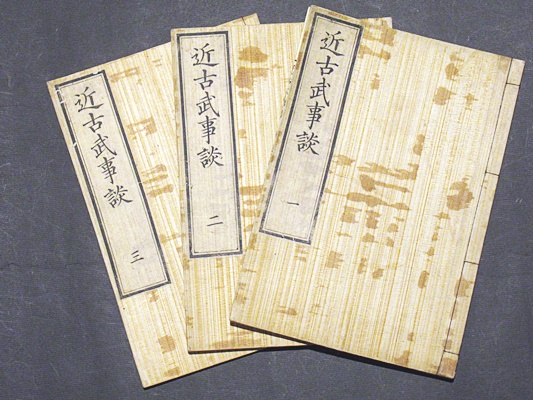 近古武事談
三
近古武事談
二
近古武事談
一